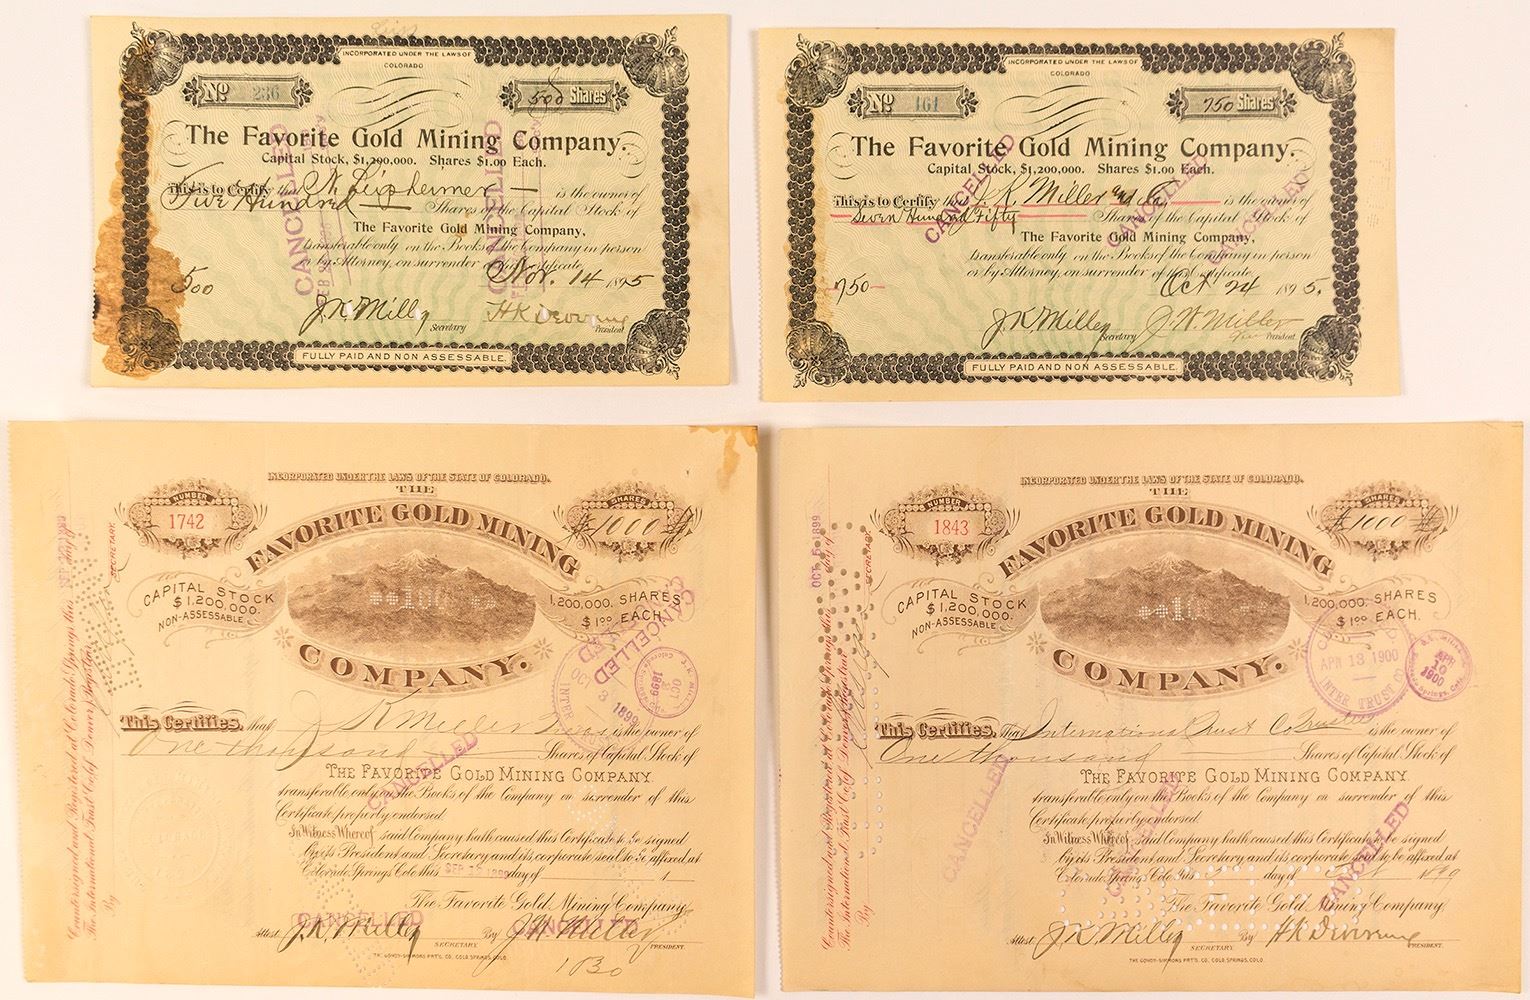 INCORPORATED UNDER THE LAWS OF
COLORADO
No 236
500 Shares
The Favorite Gold Mining Company.
Capital Stock, $1,200,000. Shares $1.00 Each.
This is to Certify that is the owner of
Five Hundred Shares of the Capital Stock of
The Favorite Gold Mining Company,
transferable only on the Books of the Company in person
or by Attorney, on surrender of this Certificate.
Nov. 14 1895
500
J.K. Miller
Secretary
President
FULLY PAID AND NON ASSESSABLE.
CANCELLED
CANCELLED
INCORPORATED UNDER THE LAWS OF
COLORADO
No 161
750 Shares
The Favorite Gold Mining Company.
Capital Stock, $1,200,000. Shares $1.00 Each.
This is to Certify that J. K. Miller is the owner of
Seven Hundred Fifty Shares of the Capital Stock of
The Favorite Gold Mining Company,
transferable only on the Books of the Company in person
or by Attorney, on surrender of this Certificate.
Oct 24 1895.
750
J.K. Miller
Secretary
J. W. Miller
President
FULLY PAID AND NON ASSESSABLE.
CANCELLED
CANCELLED
CANCELLED
INCORPORATED UNDER THE LAWS OF THE STATE OF COLORADO.
NUMBER
1742
SHARES
1000
THE
FAVORITE GOLD MINING
COMPANY.
CAPITAL STOCK
$1,200,000.
NON-ASSESSABLE
100
1,200,000. SHARES
$1.00 EACH.
CANCELLED
OCT 3 1899
OCT 3 1899
This Certifies, that J K Miller is the owner of
One thousand Shares of Capital Stock of
THE FAVORITE GOLD MINING COMPANY
transferable only on the Books of the Company on surrender of this
Certificate properly endorsed.
In Witness Whereof, said Company hath caused this Certificate to be signed
by its President and Secretary and its corporate seal to be affixed at
Colorado Springs Colo this day of
The Favorite Gold Mining Company,
Attest J.K. Miller
SECRETARY.
By
PRESIDENT.
CANCELLED
CANCELLED
CANCELLED
THE GOWDY-SIMMONS PRT'G. CO. COLO. SPRINGS, COLO.
Countersigned and Registered at Colorado Springs this day of
The International Trust Co of Denver, Registrar
By
SECRETARY.
INCORPORATED UNDER THE LAWS OF THE STATE OF COLORADO.
NUMBER
1843
SHARES
1000
THE
FAVORITE GOLD MINING
COMPANY.
CAPITAL STOCK
$1,200,000.
NON-ASSESSABLE
1,200,000. SHARES
$1.00 EACH.
APR 13 1900
INTER TRUST CO
APR 10 1900
This Certifies, that International Trust Co Trustee is the owner of
One thousand Shares of Capital Stock of
THE FAVORITE GOLD MINING COMPANY
transferable only on the Books of the Company on surrender of this
Certificate properly endorsed.
In Witness Whereof, said Company hath caused this Certificate to be signed
by its President and Secretary and its corporate seal to be affixed at
Colorado Springs Colo this day of 1899
The Favorite Gold Mining Company,
Attest J.K. Miller
SECRETARY.
By
PRESIDENT.
CANCELLED
CANCELLED
CANCELLED
THE GOWDY-SIMMONS PRT'G. CO. COLO. SPRINGS, COLO.
OCT 5 1899
Countersigned and Registered at Colorado Springs this day of
The International Trust Co of Denver, Registrar
By